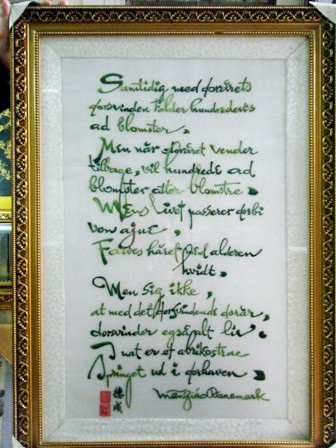 Samtidig med forårets
forsvinden falder hundredevis
ad blomster,
Men når foråret vender
tilbage, vil hundrede ad
blomster atter blomstre.
Mens livet passerer forbi
vor ajui,
Farves håret ved alderen
hvidt,
Men Sig ikke,
at med det forsvindende forår,
forsvinder også alt liv.
I nat er et abrikostræ
Springet ud i forhaven
德成
Danemark